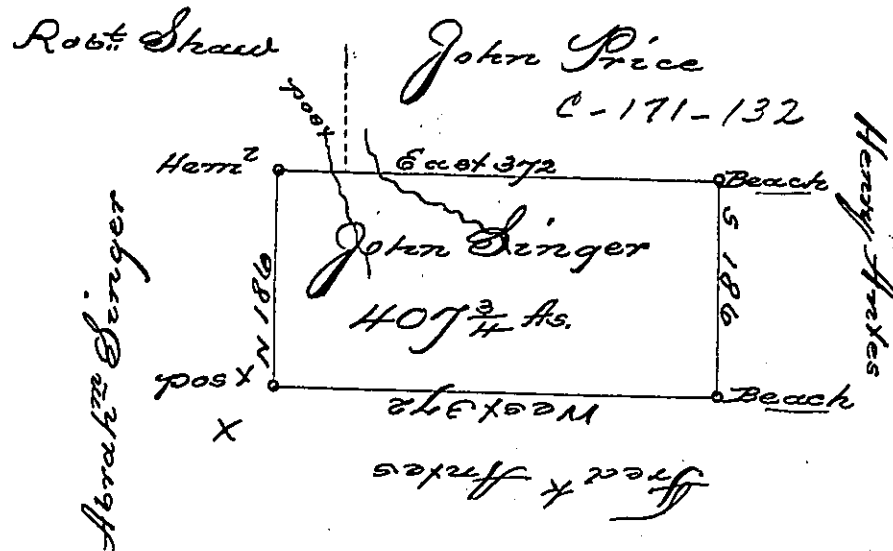 Robt. Shaw
John Price
C-171-132
road
Heml
East 372
Beach
Henry Antes
John Singer
407 3/4 As.
S 186
N 186
Abrahm Singer
post
West 372
Beach
X
Fredk Antes